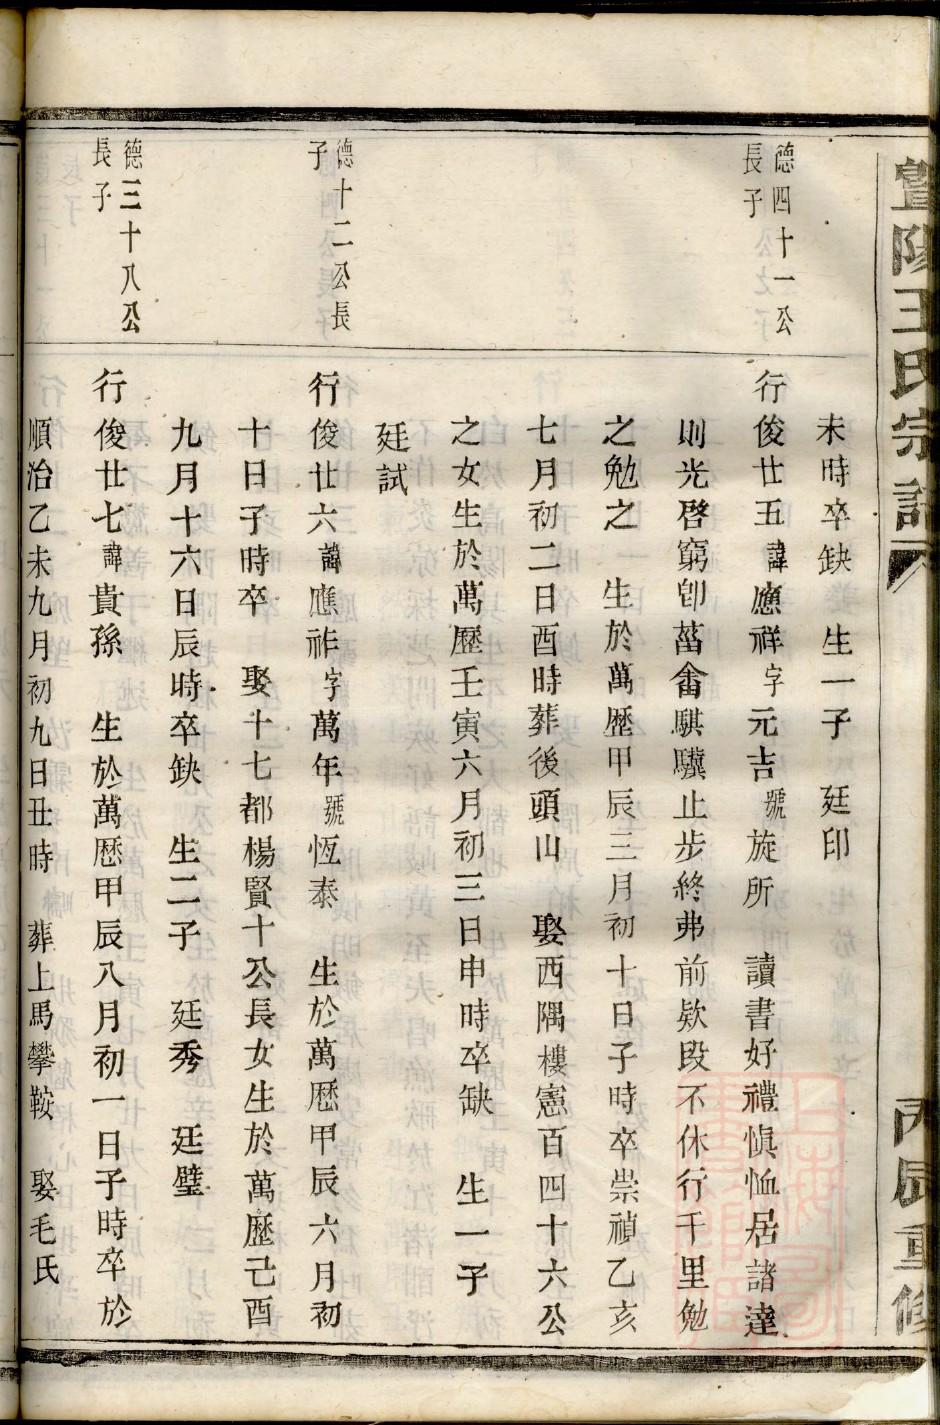 暨陽王氏宗譜
丙辰重修
未時卒缺　生一子　廷印
德四十一公
長子
行俊廿五諱應祥字元吉號旋所　讀書好禮愼恤居諸達
則光啓窮卽菑畬騏驥止步終弗前欵段不休行千里勉
之勉之　生於萬歷甲辰三月初十日子時卒崇禎乙亥
七月初二日酉時葬後頭山　娶西隅樓憲百四十六公
之女生於萬歷壬寅六月初三日申時卒缺　生一子
廷試
德十二公長
子
行俊廿六諱應祚字萬年號恆泰　生於萬歷甲辰六月初
十日子時卒　娶十七都楊賢十公長女生於萬歷己酉
九月十六日辰時卒缺　生二子　廷秀　廷璧
德三十八公
長子
行俊廿七諱貴孫　生於萬歷甲辰八月初一日子時卒於
順治乙未九月初九日丑時　葬上馬攀鞍　娶毛氏